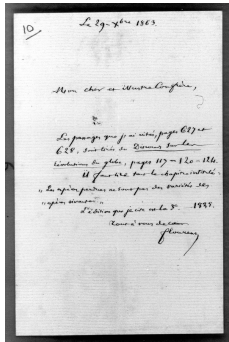 10
Le 29 Xbre 1863.
Mon cher et illustre Confrère,
Les passages que j'ai cités, pages 627 et
628, sont tirés du Discours sur les
révolutions du globe, pages 117 — 120 — 124.
Il faut lire tout le chapitre intitulé:
"Les espèces perdues ne sont pas des variétés des
"espèces vivantes"
L'édition que je cite est la 3e 1825.
Tout à vous de cœur
Flourens